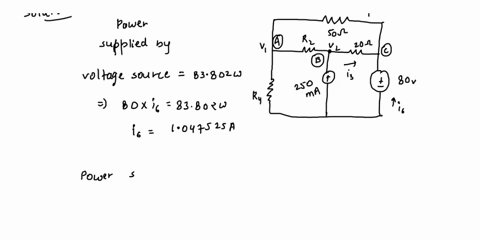 Power
supplied by
voltage source = 83.802W
⇒ 80 × i6 = 83.802W
i6 = 1.047525A
Power s
50Ω
V1 A R2 V2 20Ω C
B i3
R4 250 mA 80v
i6